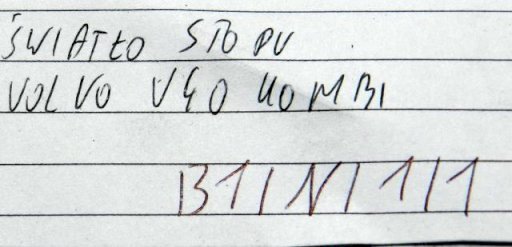 ŚWIATŁO STOPU
VOLVO V40 KOMBI
B1/N/1/1